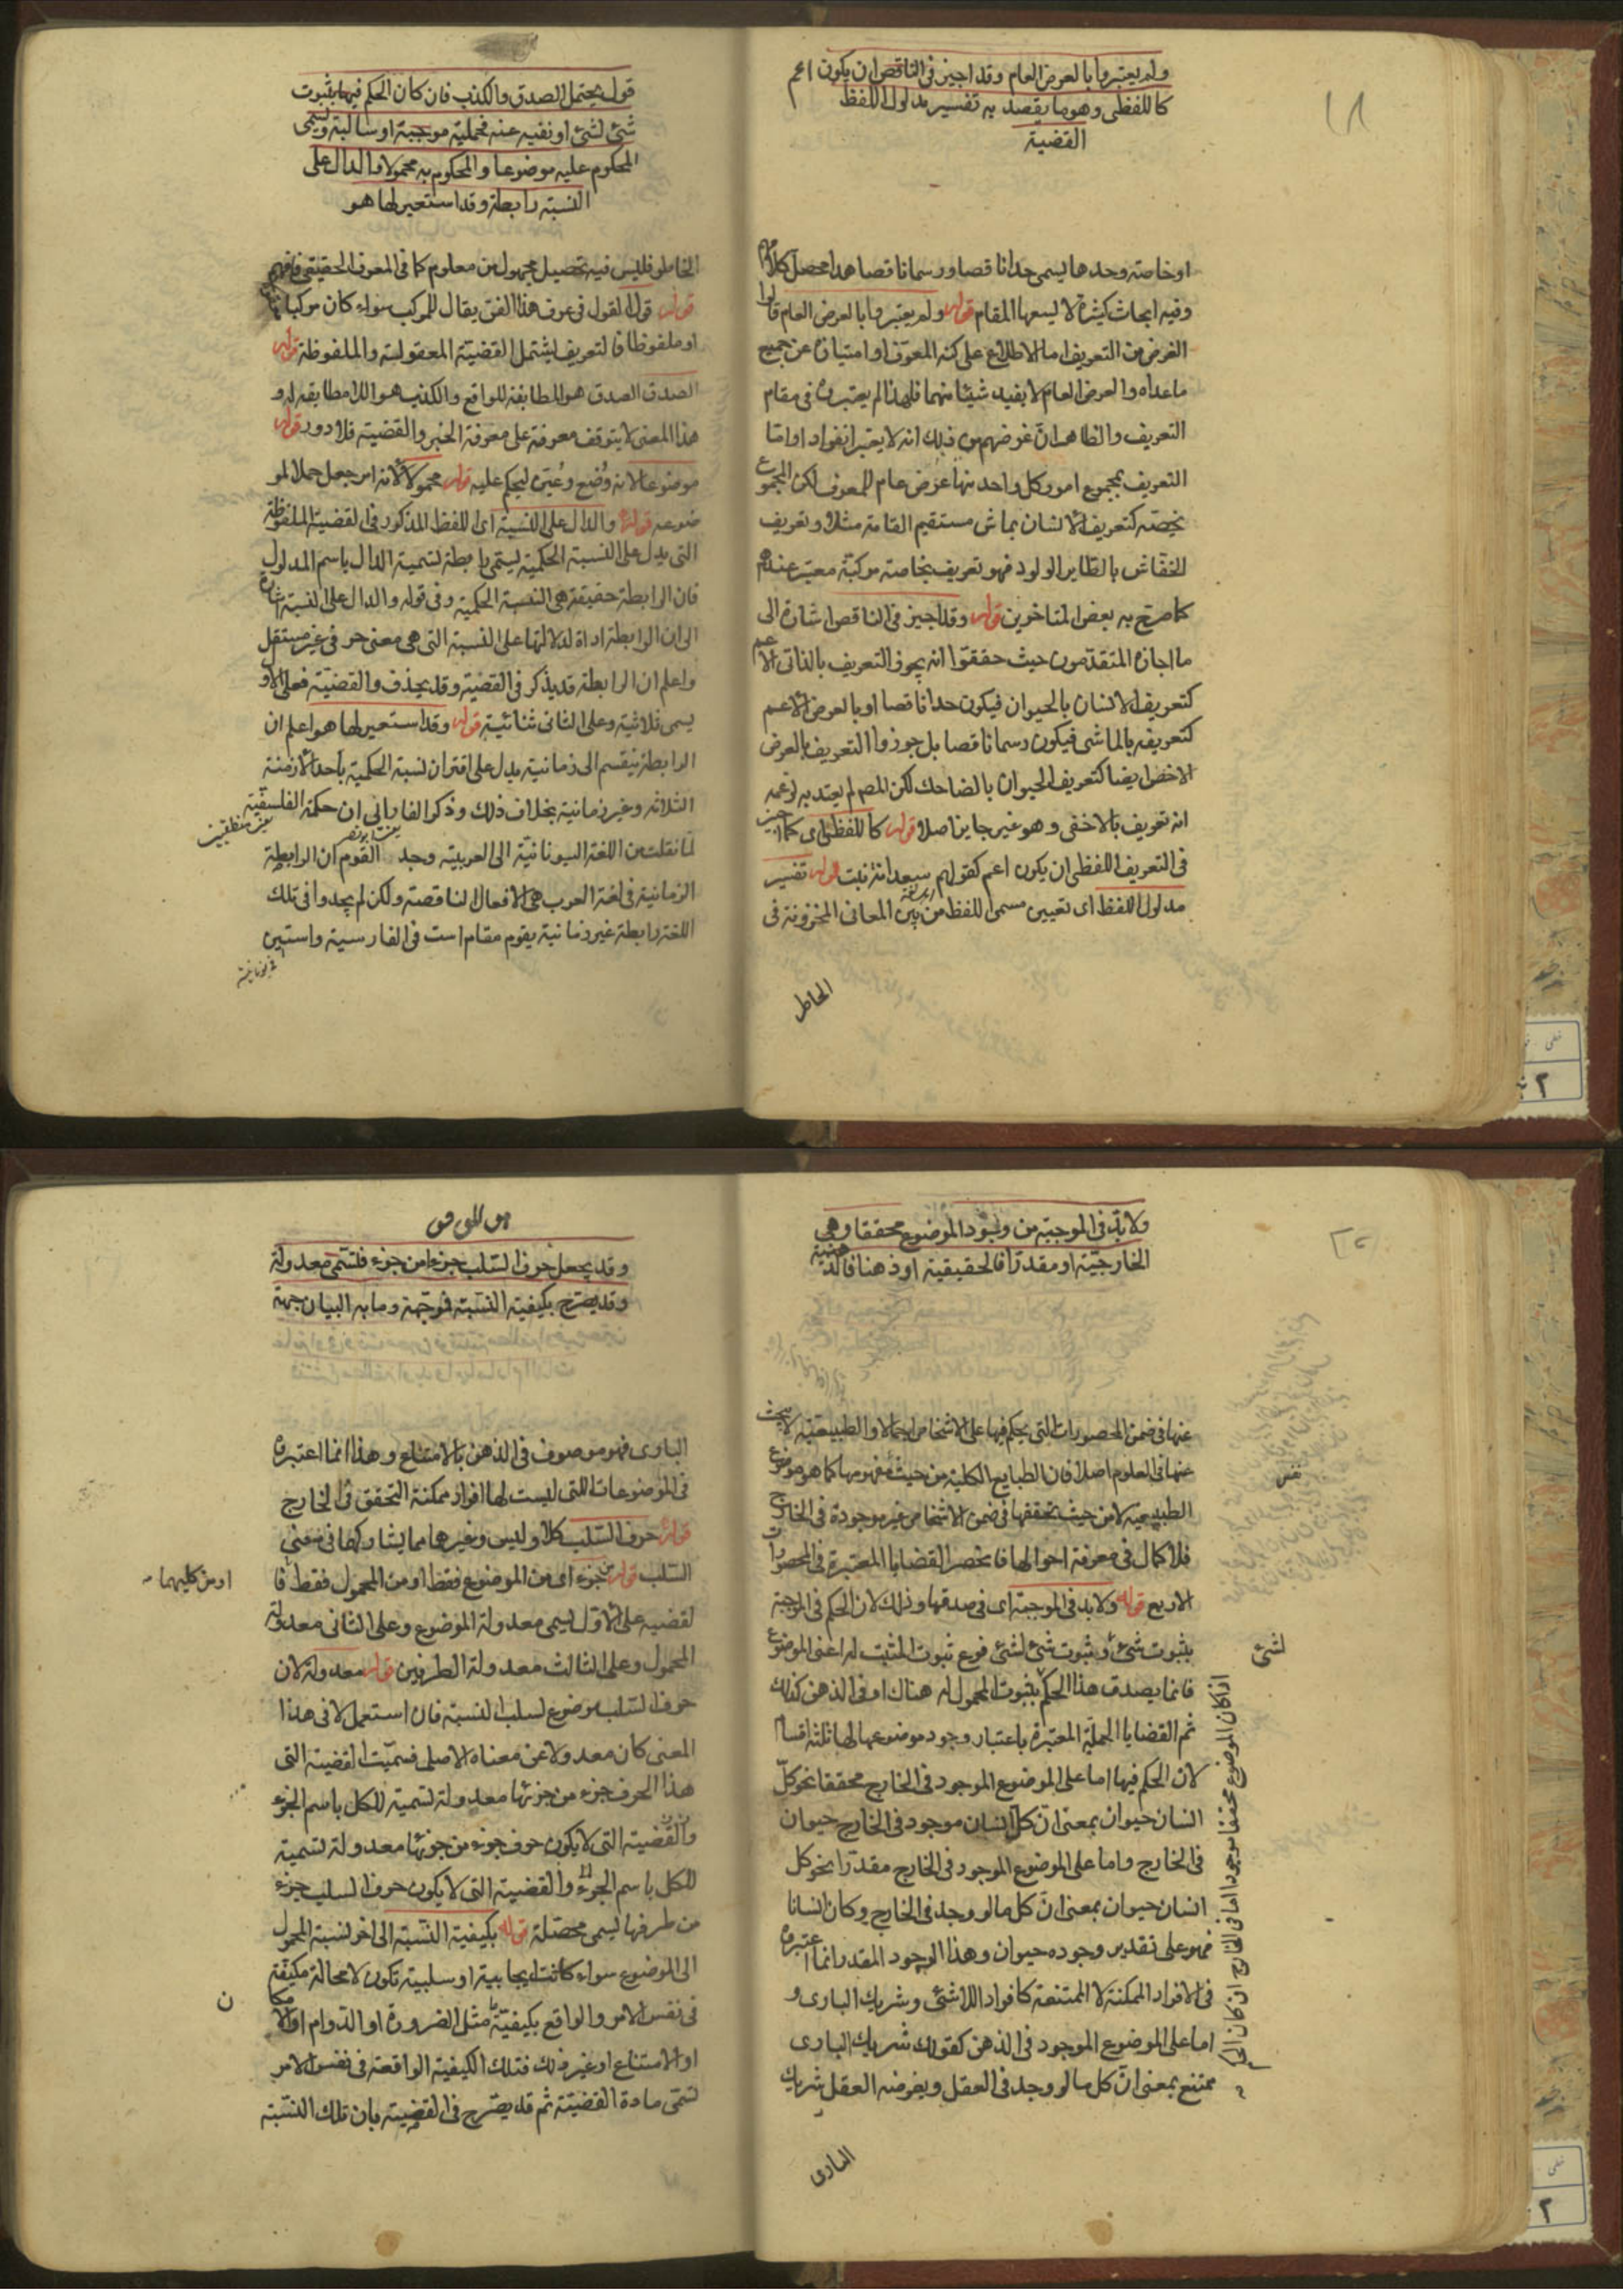 ١٨
ولم يعتبروا بالعرض العام وقد اجيز فى الناقص ان يكون اعم
كاللفظى وهو ما يقصد به تفسير مدلول اللفظ
القضية
او خاصته وحدها يسمى حدا ناقصا ورسما ناقصا هذا محصل كلامهم
وفيه ابحاث كثيرة لا يسعها المقام قوله ولم يعتبروا بالعرض العام قالوا
الغرض من التعريف اما الاطلاع على كنه المعرف او امتيازه عن جميع
ما عداه والعرض العام لا يفيد شيئا منهما فلهذا لم يعتبروه فى مقام
التعريف والظاهر ان غرضهم من ذلك انه لا يعتبر انفرادا واما
التعريف بمجموع امور كل واحد منها عرض عام للمعرف لكن المجموع
يخصه كتعريف الانسان بماش مستقيم القامة مثلا وتعريف
الخفاش بالطاير الولود فهو تعريف بخاصة مركبة معتبر عندهم
كما صرح به بعض المتاخرين قوله وقد اجيز فى الناقص اشارة الى
ما اجازه المتقدمون حيث حققوا انه يجوز التعريف بالذاتى الاعم
كتعريف الانسان بالحيوان فيكون حدا ناقصا او بالعرض الاعم
كتعريفه بالماشى فيكون رسما ناقصا بل جوزوا التعريف بالعرض
الاخص ايضا كتعريف الحيوان بالضاحك لكن المص لم يعتد به لزعمه
انه تعريف بالاخفى وهو غير جايز اصلا قوله كاللفظى اى كما اجيز
فى التعريف اللفظى ان يكون اعم كقولهم سعدانة نبت قوله تفسير
مدلول اللفظ اى تعيين مسمى اللفظ من بين المعانى المخزونة فى
الخاطر
قول يحتمل الصدق والكذب فان كان الحكم فيها بثبوت
شئ لشئ او نفيه عنه فحملية موجبة او سالبة ويسمى
المحكوم عليه موضوعا والمحكوم به محمولا والدال على
النسبة رابطة وقد استعير لها هو
الخاطر فليس فيه تحصيل مجهول من معلوم كما فى المعرف الحقيقى فافهم
قوله قول القول فى عرف هذا الفن يقال للمركب سواء كان مركبا
او ملفوظا فالتعريف يشتمل القضية المعقولية والملفوظة قوله
الصدق الصدق هو المطابقة للواقع والكذب هو اللا مطابقة له و
هذا المعنى لا يتوقف معرفته على معرفة الخبر والقضية فلا دور قوله
موضوعا لانه وضع وعين ليحكم عليه قوله محمولا لانه امر جعل حملا لمو
ضوعه قوله والدال على النسبة اى اللفظ المذكور فى القضية الملفوظة
التى يدل على النسبة الحكمية يسمى رابطة لتسمية الدال باسم المدلول
فان الرابطة حقيقة هى النسبة الحكمية وفى قوله والدال على النسبة اشارة
الى ان الرابطة اداة لدلالتها على النسبة التى هى معنى حرفى غير مستقل
واعلم ان الرابطة قد يذكر فى القضية وقد يحذف والقضية فعلى الاول
يسمى ثلاثية وعلى الثانى ثنائية قوله وقد استعير لها هو اعلم ان
الرابطة ينقسم الى زمانية يدل على اقتران نسبة الحكمية باحد الازمنة
الثلاثه وغير زمانية بخلاف ذلك وذكر الفارابى ان حكمة الفلسفية
لما نقلت من اللغة اليونانية الى العربية وجد القوم ان الرابطة
الزمانية فى لغة العرب هى الافعال الناقصة ولكن لم يجدوا فى تلك
اللغة رابطة غير زمانية يقوم مقام است فى الفارسية واستين
ولا بد فى الموجبة من وجود الموضوع محققا وهى
الخارجية او مقدرا فالحقيقية او ذهنا فالذهنية
عنها فى ضمن المحصورات التى يحكم فيها على الاشخاص اجمالا والطبيعية لا يبحث
عنها فى العلوم اصلا فان الطبايع الكلية من حيث مفهومها كما هو موضوع
الطبيعية لا من حيث تحققها فى ضمن الاشخاص غير موجودة فى الخارج
فلا كمال فى معرفة احوالها فانحصر القضايا المعتبرة فى المحصورات
الاربع قوله ولا بد فى الموجبة اى فى صدقها وذلك لان الحكم فى الموجبة
بثبوت شئ وثبوت شئ لشئ فرع ثبوت المثبت له اعنى الموضوع
لشئ
فانما يصدق هذا الحكم بثبوت المحمول له هناك او فى الذهن كذلك
ثم القضايا الحملية المعتبرة باعتبار وجود موضوعها لها ثلثة اقسام
لان الحكم فيها اما على الموضوع الموجود فى الخارج محققا نحو كل
انسان حيوان بمعنى ان كل انسان موجود فى الخارج حيوان
فى الخارج واما على الموضوع الموجود فى الخارج مقدرا نحو كل
انسان حيوان بمعنى ان كل ما لو وجد فى الخارج وكان انسانا
فهو على تقدير وجوده حيوان وهذا الوجود المقدر انما اعتبروه
فى الافراد الممكنة لا الممتنعة كافراد اللاشئ وشريك البارى و
اما على الموضوع الموجود فى الذهن كقولك شريك البارى
ممتنع بمعنى ان كل ما لو وجد فى العقل ويفرضه العقل شريك
البارى
اذا كان الموضوع محققا موجودا اما فى الخارج ان كان
وقد يجعل حرف السلب جزءا من جزء فتسمى معدولة
وقد يصرح بكيفية النسبة فموجهة وما به البيان جهة
البارى فهو موصوف فى الذهن بالامتناع وهذا انما اعتبروه
فى الموضوعات التى ليست لها افراد ممكنة التحقق فى الخارج
قوله حرف السلب كلا وليس وغيرهما مما يشاركها فى معنى
السلب قوله من جزء اى من الموضوع فقط او من المحمول فقط فا
او من كليهما
لقضيه على الاول يسمى معدولة الموضوع وعلى الثانى معدولة
المحمول وعلى الثالث معدولة الطرفين قوله معدولة لان
حرف السلب موضوع لسلب النسبة فان استعمل لا فى هذا
المعنى كان معدولا عن معناه الاصلى فسميت القضية التى
هذا الحرف جزء من جزئها معدولة لتسمية للكل باسم الجزء
والقضية التى لا يكون حرف جزء من جزئها معدولة لتسمية
للكل باسم الجزء والقضية التى لا يكون حرف السلب جزء
من طرفها يسمى محصلة قوله بكيفية النسبة الى اخر لنسبة المحمول
الى الموضوع سواء كانت ايجابية او سلبية تكون لا محالة مكيفة
فى نفس الامر والواقع بكيفية مثل الضرورة او الدوام او الامكان
او الامتناع او غير ذلك فتلك الكيفية الواقعة فى نفس الامر
تسمى مادة القضية ثم قد يصرح فى القضية بان تلك النسبة